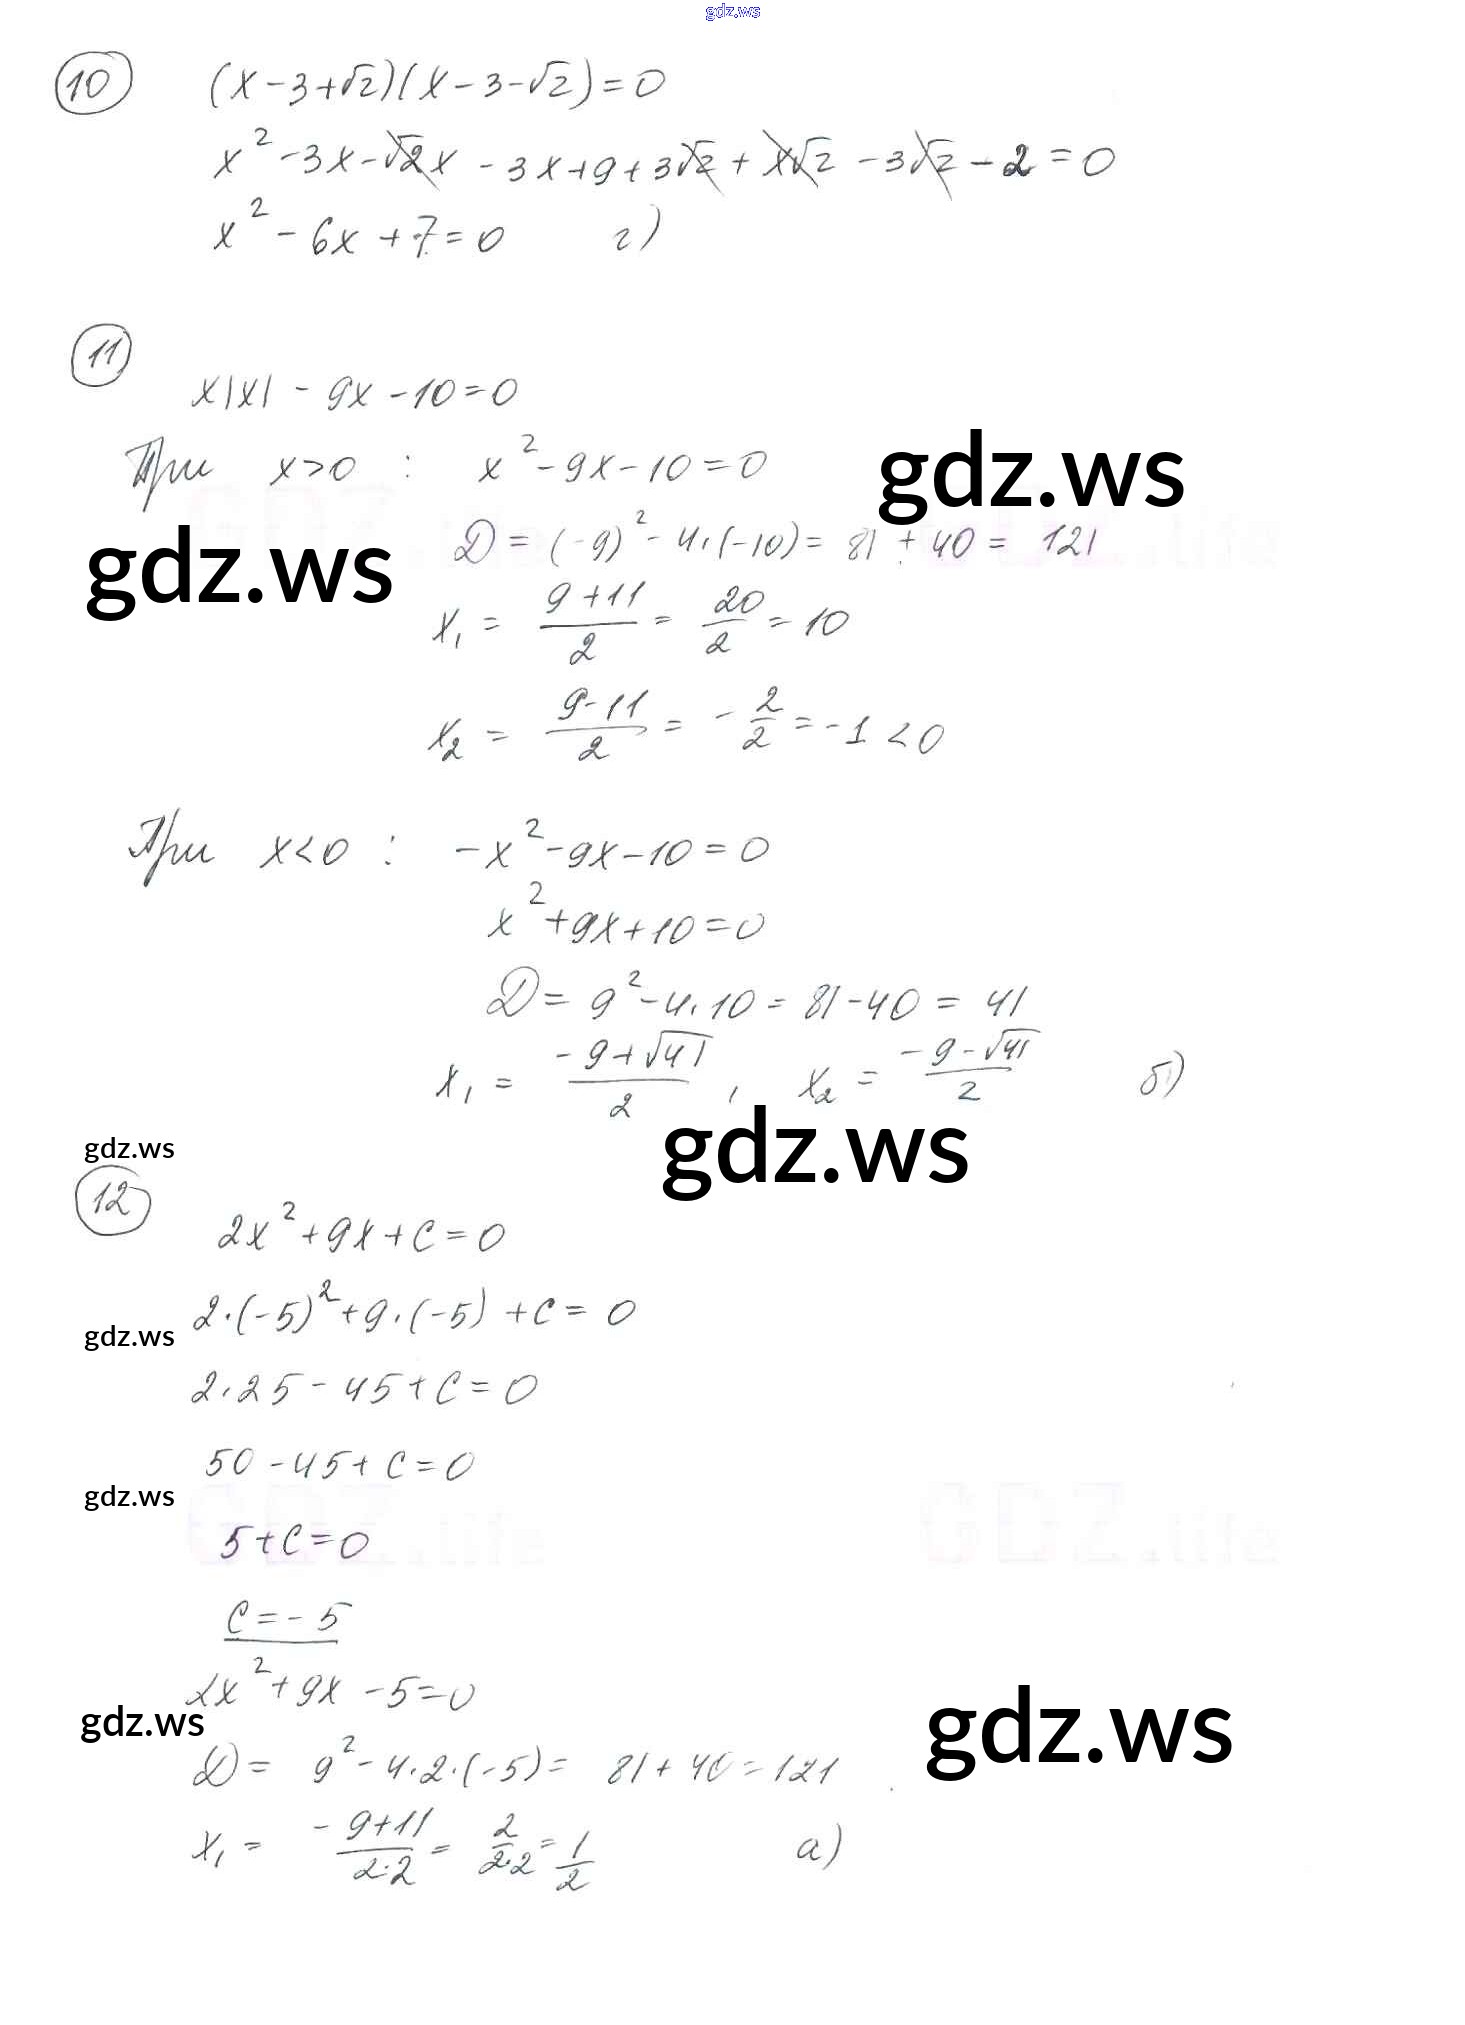 gdz.ws
10 (x-3+√2)(x-3-√2)=0
x²-3x-√2x-3x+9+3√2+x√2-3√2-2=0
x²-6x+7=0 г)
11
x|x|-9x-10=0
При x>0 : x²-9x-10=0
gdz.ws
D=(-9)²-4·(-10)=81+40=121
gdz.ws
x₁=(9+11)/2=20/2=10
x₂=(9-11)/2=-2/2=-1<0
При x<0 : -x²-9x-10=0
x²+9x+10=0
D=9²-4·10=81-40=41
x₁=(-9+√41)/2, x₂=(-9-√41)/2 б)
gdz.ws
gdz.ws
12
2x²+9x+c=0
2·(-5)²+9·(-5)+c=0
gdz.ws
2·25-45+c=0
50-45+c=0
gdz.ws
GDZ.life GDZ.life
5+c=0
c=-5
2x²+9x-5=0
gdz.ws
gdz.ws
D=9²-4·2·(-5)=81+40=121
x₁=(-9+11)/(2·2)=2/(2·2)=1/2 а)